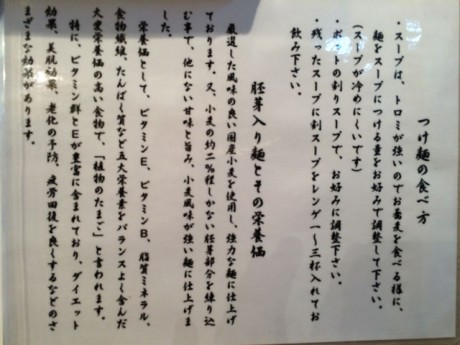 つけ麺の食べ方
・スープは、トロミが強いのでお蕎麦を食べる様に、
麺をスープにつける量をお好みで調整して下さい。
(スープが冷めにくいです)
・ポットの割りスープで、お好みに調整下さい。
・残ったスープに割スープをレンゲ一〜三杯入れてお
飲み下さい。
胚芽入り麺とその栄養価
厳選した風味の良い国産小麦を使用し、強力な麺に仕上げ
ております。又、小麦の約二%程しかない胚芽部分を練り込
む事で、他にない甘味と旨み、小麦風味が強い麺に仕上げま
した。
栄養価として、ビタミンE、ビタミンB、脂質ミネラル、
食物繊維、たんぱく質など五大栄養素をバランスよく含んだ
大変栄養価の高い食物で、「植物のたまご」と言われます。
特に、ビタミン群とEが豊富に含まれており、ダイエット
効果、美肌効果、老化の予防、疲労回復を良くするなどのさ
まざまな効果があります。